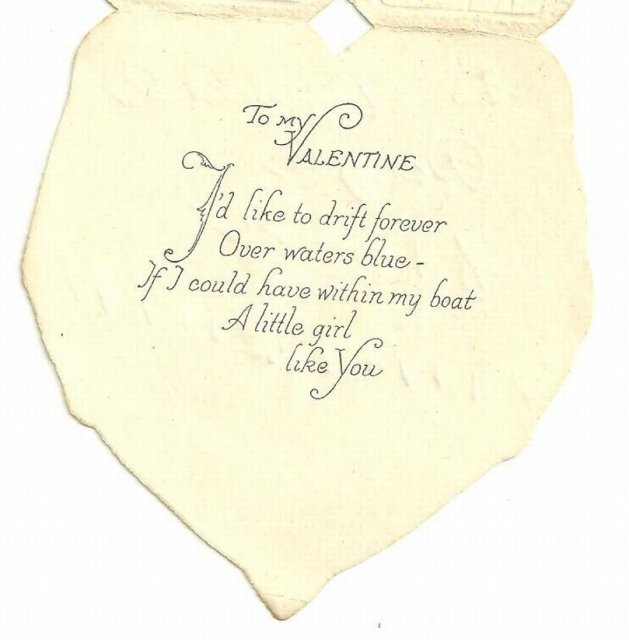 To my
Valentine
I'd like to drift forever
Over waters blue -
If I could have within my boat
A little girl
like You